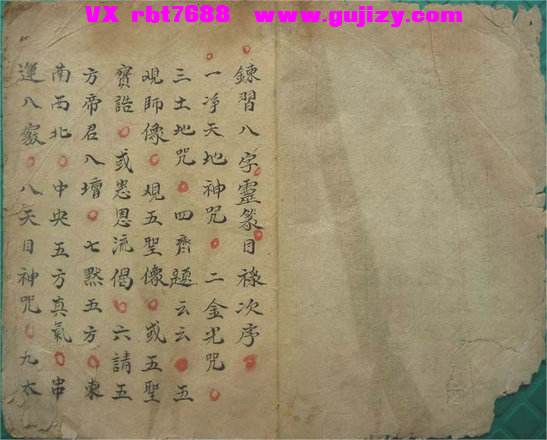 VX rbt7688 www.gujizy.com
鍊習八字靈篆目祿次序
一净天地神咒 二金光咒
三土地咒 四齊題云云 五
覌師像 覌五聖像 或五聖
寳誥 或志恩流偈 六請五
方帝君入壇 七黙五方 東
南西北 中央五方真氣 串
運八竅 八天目神咒 九太